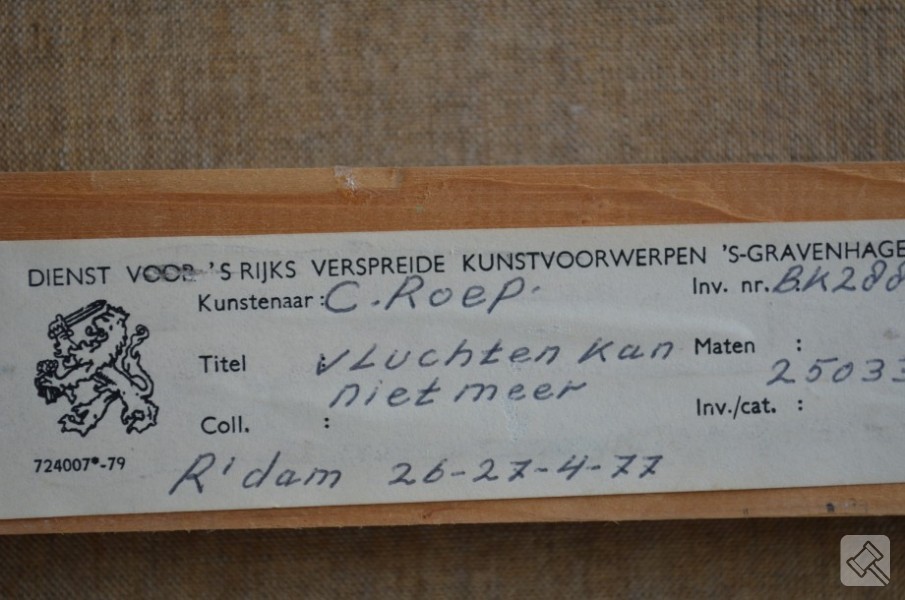 DIENST VOOR 'S RIJKS VERSPREIDE KUNSTVOORWERPEN 'S-GRAVENHAGE
Kunstenaar : C. Roep. Inv. nr. BK288
Titel : vLuchten kan Maten :
niet meer 25033
Coll. : Inv./cat. :
724007*-79
R'dam 26-27-4-77